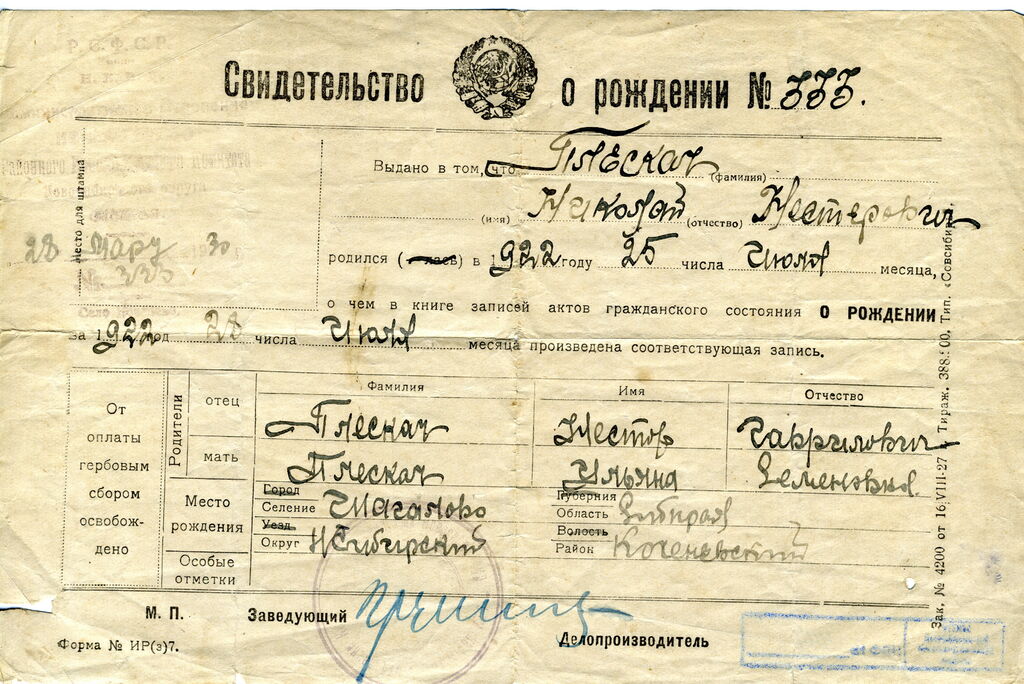 Р.С.Ф.С.Р.
Свидетельство о рождении № 333.
Место для штампа
28 Марта 30
№ 333
Выдано в том, что Плескач (фамилия)
(имя) Николай (отчество) Нестерович
родился (лась) в 1922 году 25 числа Июля месяца,
о чем в книге записей актов гражданского состояния О РОЖДЕНИИ
за 1922 год 28 числа Июля месяца произведена соответствующая запись.
От оплаты гербовым сбором освобождено
Родители
Фамилия Имя Отчество
отец Плескач Нестор Гаврилович
мать Плескач Ульяна Семеновна
Место рождения
Город Губерния
Селение Шагалово Область Сибкрая
Уезд Волость
Округ НСибирский Район Коченевский
Особые отметки
М. П. Заведующий
Делопроизводитель
Форма № ИР(з)7.
Зак. № 4200 от 16/VIII-27 г. Тираж. 388.500. Тип. «Совсибирь».